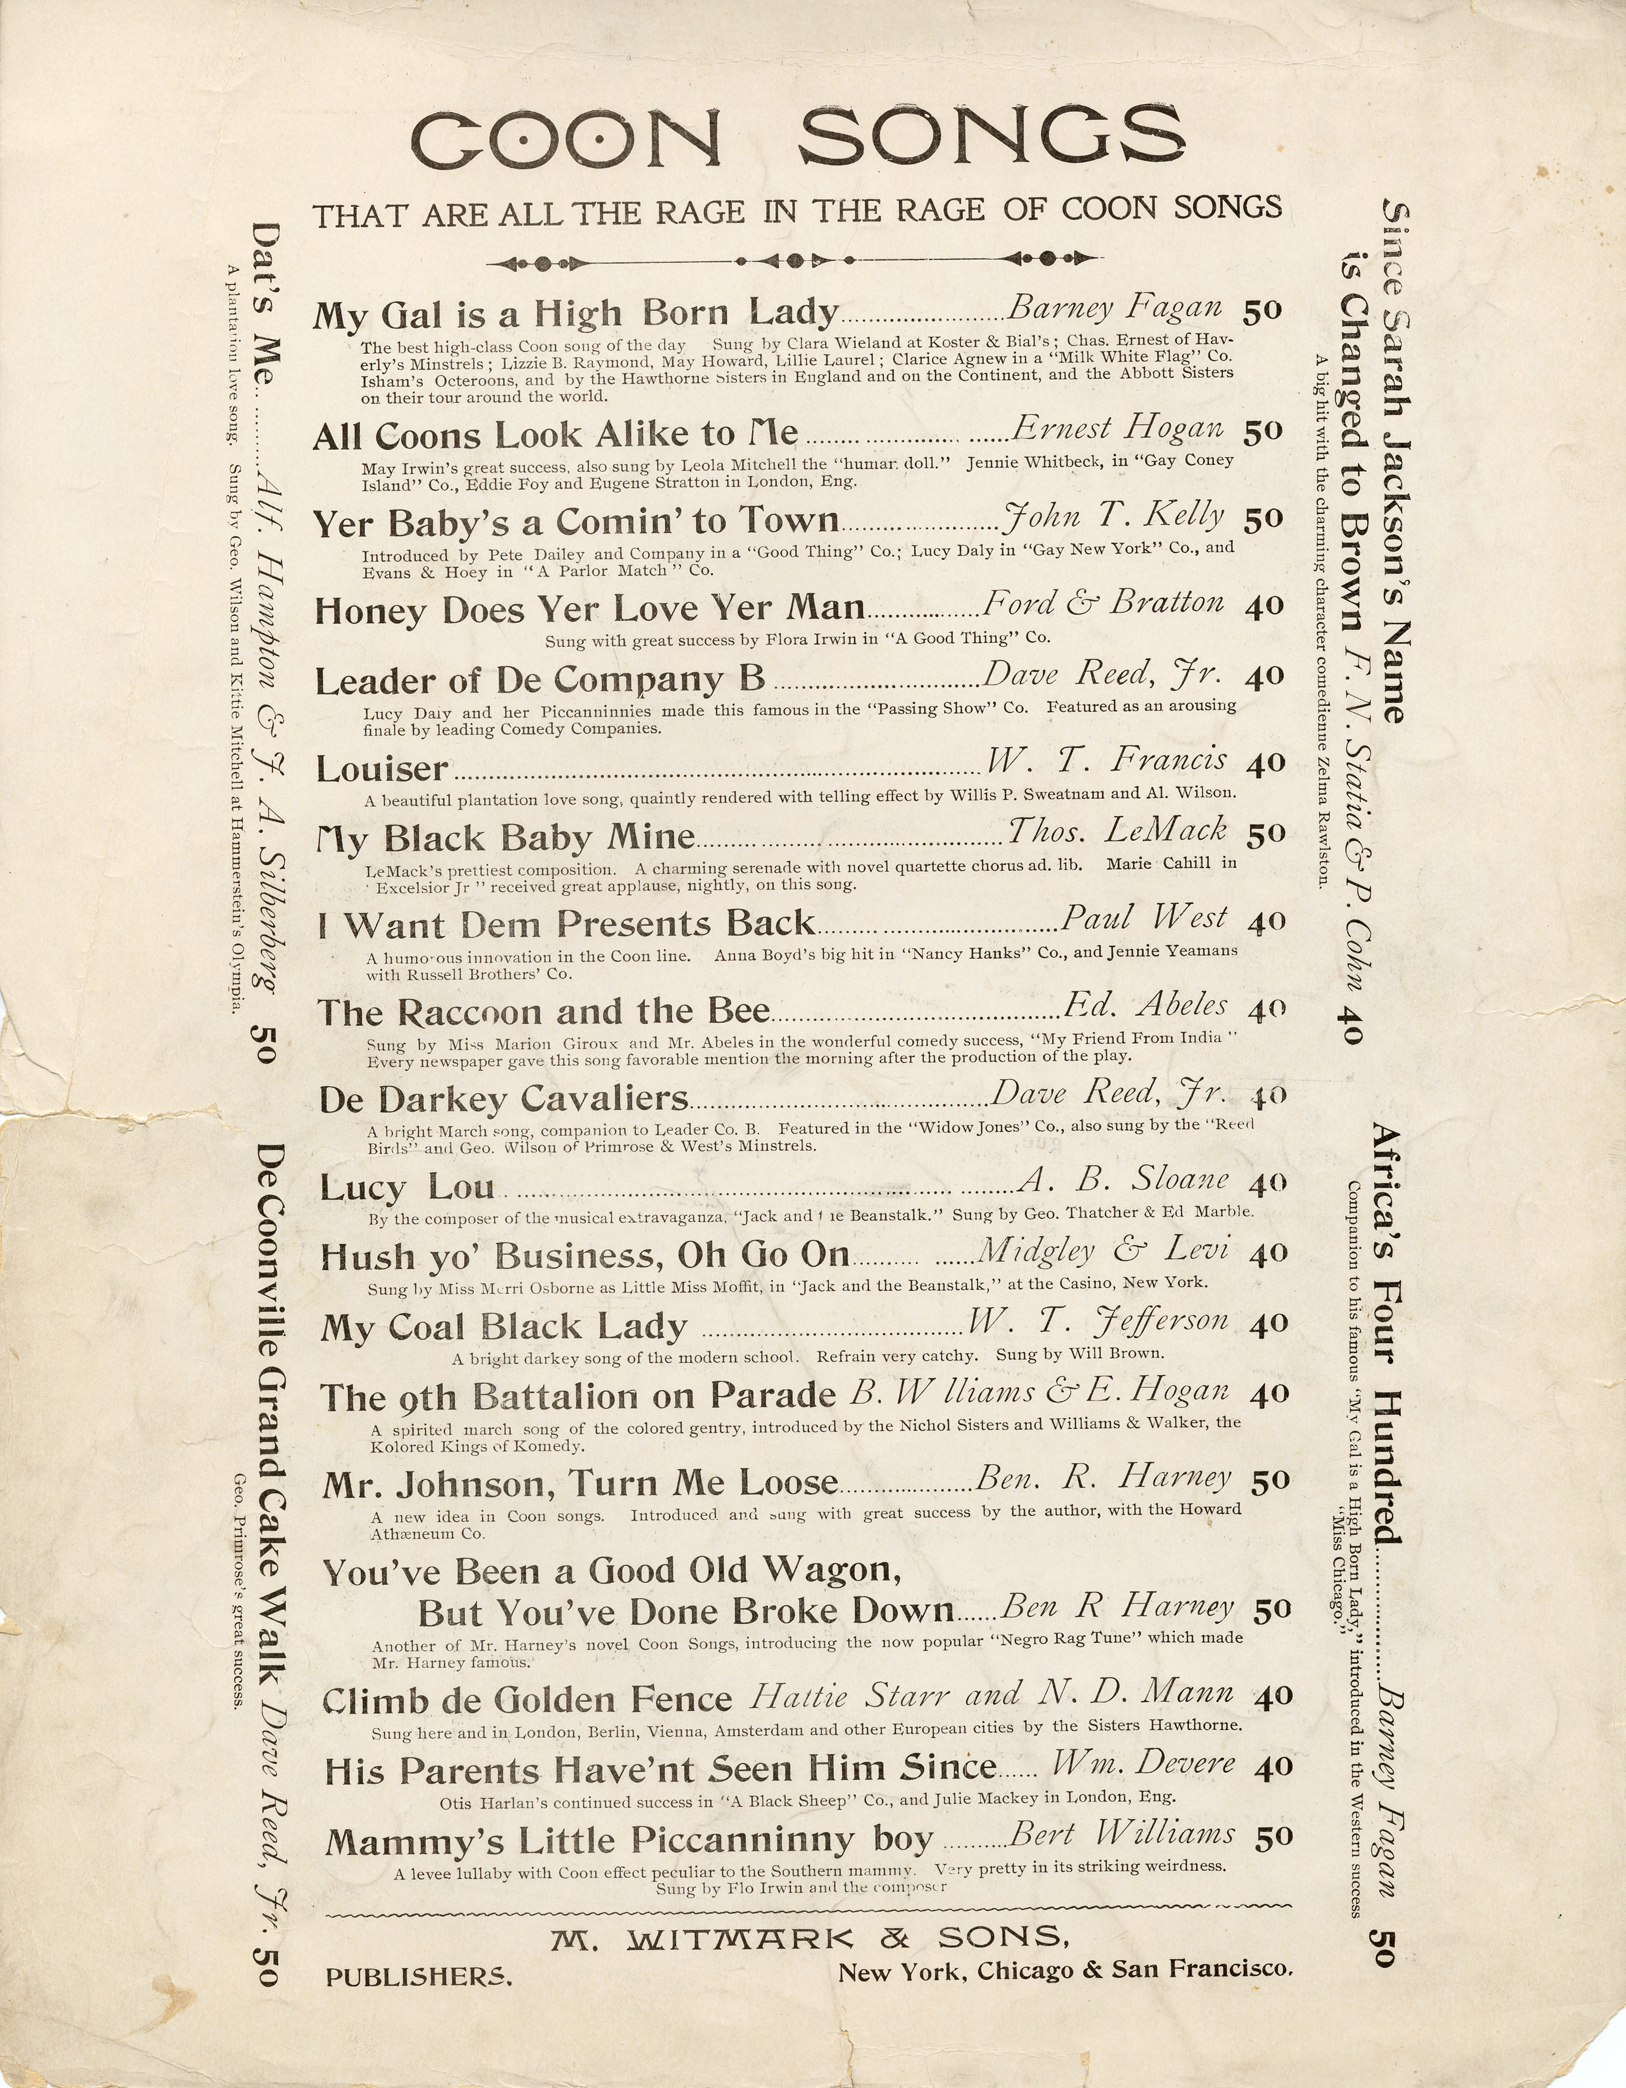 COON SONGS
THAT ARE ALL THE RAGE IN THE RAGE OF COON SONGS
My Gal is a High Born Lady........................Barney Fagan 50
The best high-class Coon song of the day Sung by Clara Wieland at Koster & Bial's; Chas. Ernest of Hav-
erly's Minstrels; Lizzie B. Raymond, May Howard, Lillie Laurel; Clarice Agnew in a "Milk White Flag" Co.
Isham's Octeroons, and by the Hawthorne Sisters in England and on the Continent, and the Abbott Sisters
on their tour around the world.
All Coons Look Alike to Me ........ .............. ......Ernest Hogan 50
May Irwin's great success, also sung by Leola Mitchell the "human doll." Jennie Whitbeck, in "Gay Coney
Island" Co., Eddie Foy and Eugene Stratton in London, Eng.
Yer Baby's a Comin' to Town.......................John T. Kelly 50
Introduced by Pete Dailey and Company in a "Good Thing" Co.; Lucy Daly in "Gay New York" Co., and
Evans & Hoey in "A Parlor Match" Co.
Honey Does Yer Love Yer Man.................Ford & Bratton 40
Sung with great success by Flora Irwin in "A Good Thing" Co.
Leader of De Company B ..............................Dave Reed, Jr. 40
Lucy Daly and her Piccanninnies made this famous in the "Passing Show" Co. Featured as an arousing
finale by leading Comedy Companies.
Louiser..............................................................................W. T. Francis 40
A beautiful plantation love song, quaintly rendered with telling effect by Willis P. Sweatnam and Al. Wilson.
My Black Baby Mine.............................................Thos. LeMack 50
LeMack's prettiest composition. A charming serenade with novel quartette chorus ad. lib. Marie Cahill in
' Excelsior Jr " received great applause, nightly, on this song.
I Want Dem Presents Back...................................Paul West 40
A humorous innovation in the Coon line. Anna Boyd's big hit in "Nancy Hanks" Co., and Jennie Yeamans
with Russell Brothers' Co.
The Raccoon and the Bee..........................................Ed. Abeles 40
Sung by Miss Marion Giroux and Mr. Abeles in the wonderful comedy success, "My Friend From India "
Every newspaper gave this song favorable mention the morning after the production of the play.
De Darkey Cavaliers...........................................Dave Reed, Jr. 40
A bright March song, companion to Leader Co. B. Featured in the "Widow Jones" Co., also sung by the "Reed
Birds" and Geo. Wilson of Primrose & West's Minstrels.
Lucy Lou . .............................................................. ........A. B. Sloane 40
By the composer of the musical extravaganza, "Jack and the Beanstalk." Sung by Geo. Thatcher & Ed Marble.
Hush yo' Business, Oh Go On.......... ......Midgley & Levi 40
Sung by Miss Merri Osborne as Little Miss Moffit, in "Jack and the Beanstalk," at the Casino, New York.
My Coal Black Lady ......................................W. T. Jefferson 40
A bright darkey song of the modern school. Refrain very catchy. Sung by Will Brown.
The 9th Battalion on Parade B. W lliams & E. Hogan 40
A spirited march song of the colored gentry, introduced by the Nichol Sisters and Williams & Walker, the
Kolored Kings of Komedy.
Mr. Johnson, Turn Me Loose...................Ben. R. Harney 50
A new idea in Coon songs. Introduced and sung with great success by the author, with the Howard
Athæneum Co.
You've Been a Good Old Wagon,
But You've Done Broke Down......Ben R Harney 50
Another of Mr. Harney's novel Coon Songs, introducing the now popular "Negro Rag Tune" which made
Mr. Harney famous.
Climb de Golden Fence Hattie Starr and N. D. Mann 40
Sung here and in London, Berlin, Vienna, Amsterdam and other European cities by the Sisters Hawthorne.
His Parents Have'nt Seen Him Since...... Wm. Devere 40
Otis Harlan's continued success in "A Black Sheep" Co., and Julie Mackey in London, Eng.
Mammy's Little Piccanninny boy ..........Bert Williams 50
A levee lullaby with Coon effect peculiar to the Southern mammy. Very pretty in its striking weirdness.
Sung by Flo Irwin and the composer
M. WITMARK & SONS,
PUBLISHERS. New York, Chicago & San Francisco.
Dat's Me.. .........Alf. Hampton & J. A. Silberberg 50
A plantation love song. Sung by Geo. Wilson and Kittie Mitchell at Hammerstein's Olympia.
De Coonville Grand Cake Walk Dave Reed, Jr. 50
Geo. Primrose's great success.
Since Sarah Jackson's Name
is Changed to Brown F. N. Statia & P. Cohn 40
A big hit with the charming character comedienne Zelma Rawlston.
Africa's Four Hundred....................Barney Fagan 50
Companion to his famous "My Gal is a High Born Lady," introduced in the Western success
"Miss Chicago."